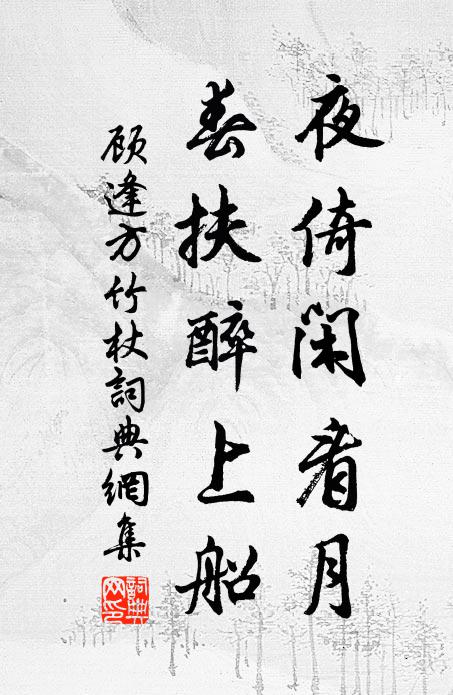 夜倚閑看月
春扶醉上船
顧逢方竹杖詞典網集
詞典
网印